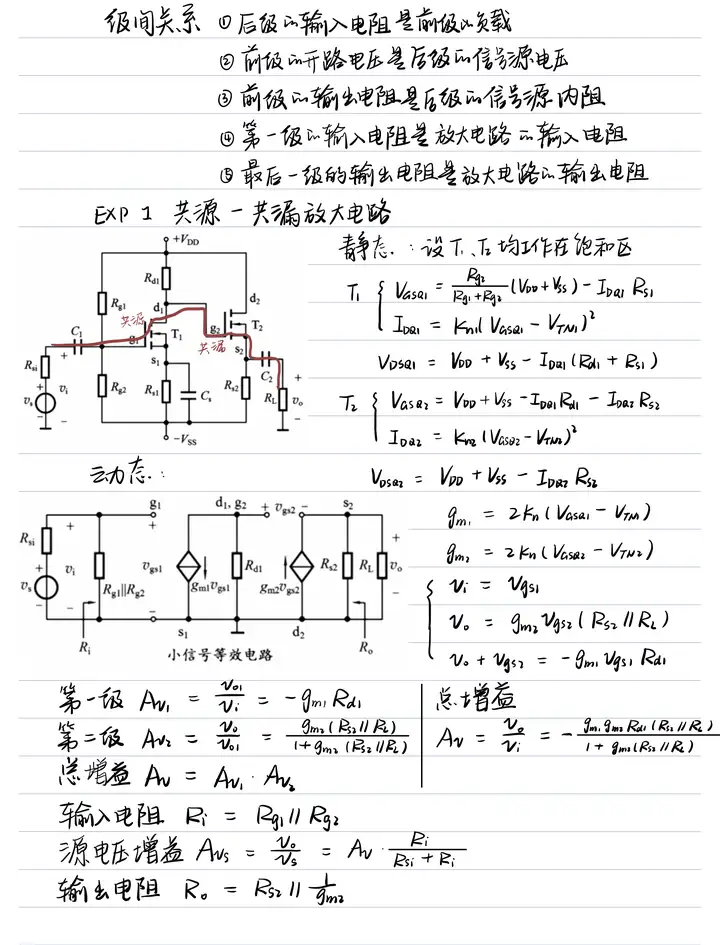 级间关系 ① 后级的输入电阻是前级的负载
② 前级的开路电压是后级的信号源电压
③ 前级的输出电阻是后级的信号源内阻
④ 第一级的输入电阻是放大电路的输入电阻
⑤ 最后一级的输出电阻是放大电路的输出电阻
EXP 1 共源-共漏放大电路
静态：设T₁、T₂均工作在饱和区
+V_DD
R_d1
d₁
d₂
R_g1
共源
g₁
T₁
g₂
T₂
共漏
C₁
s₁
s₂
C₂
R_si
v_i
v_s
R_g2
R_s1
C_s
R_s2
R_L
v_o
-V_SS
T₁ { V_GSQ1 = R_g2/(R_g1+R_g2) (V_DD + V_SS) - I_DQ1 R_S1
I_DQ1 = K_n1 (V_GSQ1 - V_TN1)²
V_DSQ1 = V_DD + V_SS - I_DQ1 (R_d1 + R_S1)
T₂ { V_GSQ2 = V_DD + V_SS - I_DQ1 R_d1 - I_DQ2 R_S2
I_DQ2 = K_n2 (V_GSQ2 - V_TN2)²
V_DSQ2 = V_DD + V_SS - I_DQ2 R_S2
动态：
g₁
d₁, g₂ + v_gs2 - s₂
R_si
v_s
v_i
R_g1||R_g2
v_gs1
g_m1v_gs1
R_d1
g_m2v_gs2
R_s2
R_L
v_o
R_i
s₁
d₂
R_o
小信号等效电路
g_m1 = 2K_n (V_GSQ1 - V_TN1)
g_m2 = 2K_n (V_GSQ2 - V_TN2)
{ v_i = v_gs1
v_o = g_m2 v_gs2 (R_S2 // R_L)
v_o + v_gs2 = -g_m1 v_gs1 R_d1
第一级 A_v1 = v_o1/v_i = -g_m1 R_d1
第二级 A_v2 = v_o/v_o1 = g_m2 (R_S2 // R_L)/(1 + g_m2 (R_S2 // R_L))
总增益 A_v = A_v1 · A_v2
总增益
A_v = v_o/v_i = - g_m1 g_m2 R_d1 (R_S2 // R_L)/(1 + g_m2 (R_S2 // R_L))
输入电阻 R_i = R_g1 // R_g2
源电压增益 A_vs = v_o/v_s = A_v · R_i/(R_si + R_i)
输出电阻 R_o = R_S2 // 1/g_m2